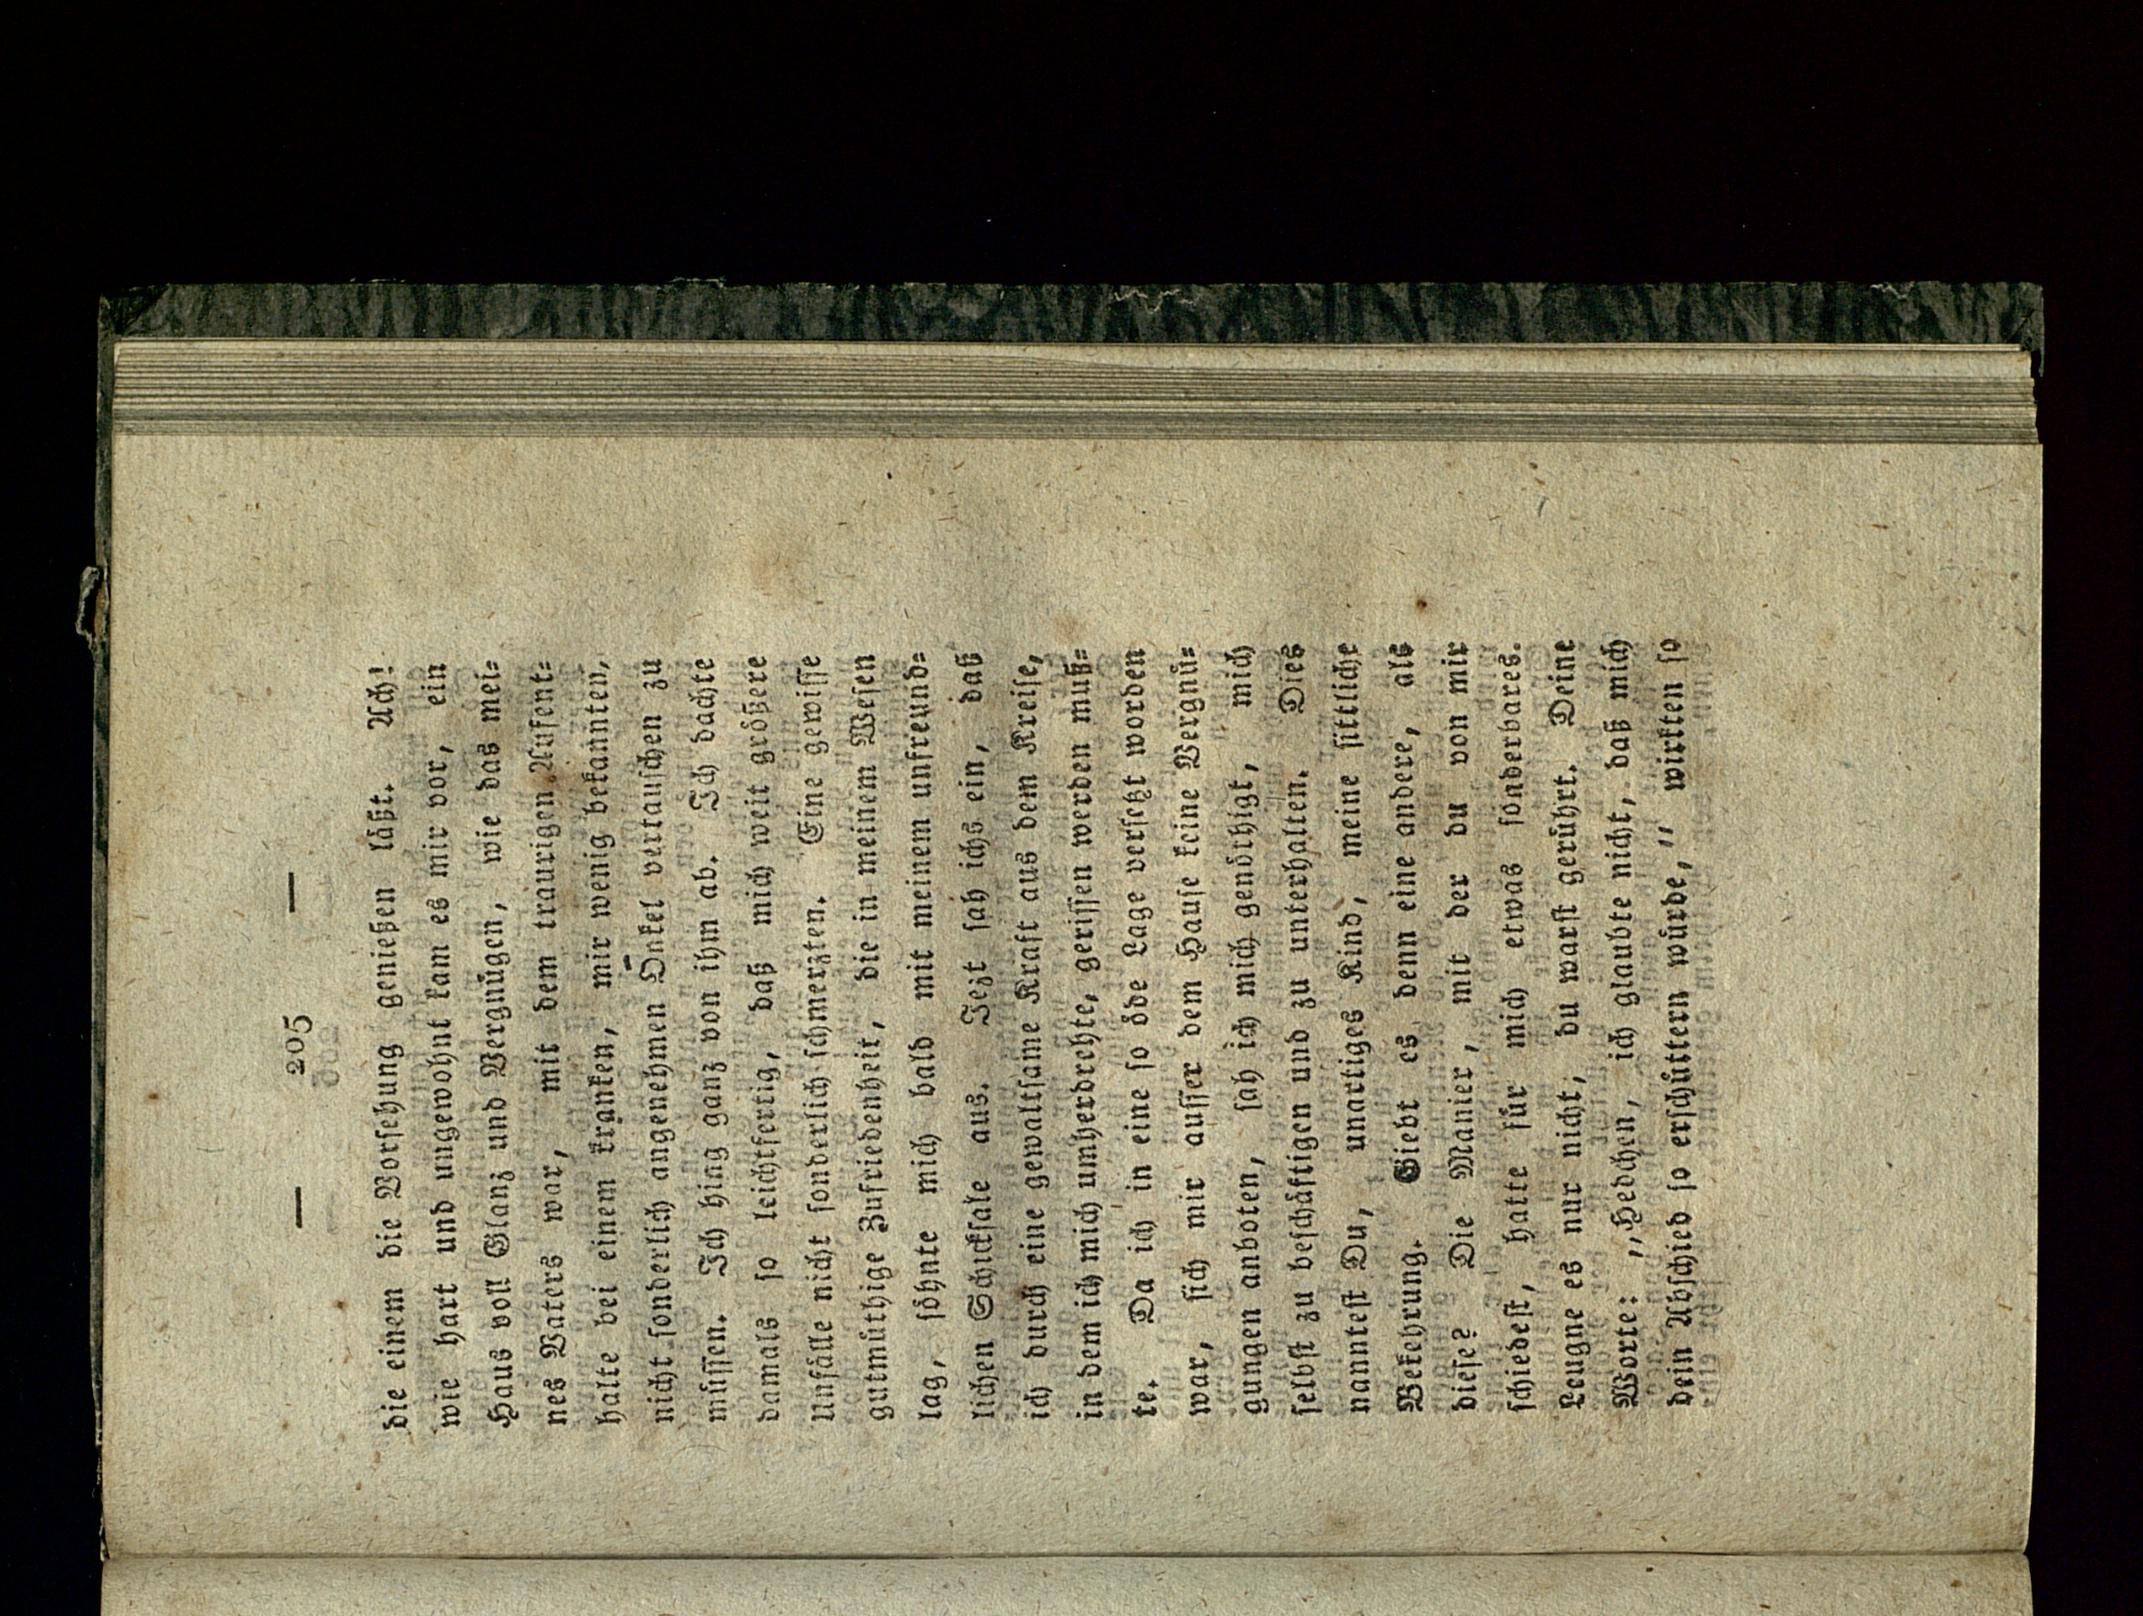 — 205 —
die einem die Vorsehung genießen läßt. Ach!
wie hart und ungewohnt kam es mir vor, ein
Haus voll Glanz und Vergnügen, wie das mei-
nes Vaters war, mit dem traurigen Aufent-
halte bei einem kranken, mir wenig bekannten,
nicht sonderlich angenehmen Onkel vertauschen zu
müssen. Ich hing ganz von ihm ab. Ich dachte
damals so leichtfertig, daß mich weit größere
Unfälle nicht sonderlich schmerzten. Eine gewisse
gutmüthige Zufriedenheit, die in meinem Wesen
lag, söhnte mich bald mit meinem unfreund-
lichen Schicksale aus. Jezt sah ichs ein, daß
ich durch eine gewaltsame Kraft aus dem Kreise,
in dem ich mich umherdrehte, gerissen werden muß-
te. Da ich in eine so öde Lage versetzt worden
war, sich mir ausser dem Hause keine Vergnü-
gungen anboten, sah ich mich genöthigt, mich
selbst zu beschäftigen und zu unterhalten. Dies
nanntest Du, unartiges Kind, meine sittliche
Bekehrung. Giebt es denn eine andere, als
diese? Die Manier, mit der du von mir
schiedest, hatte für mich etwas sonderbares.
Leugne es nur nicht, du warst gerührt. Deine
Worte: „Hedchen, ich glaubte nicht, daß mich
dein Abschied so erschüttern würde,“ wirkten so